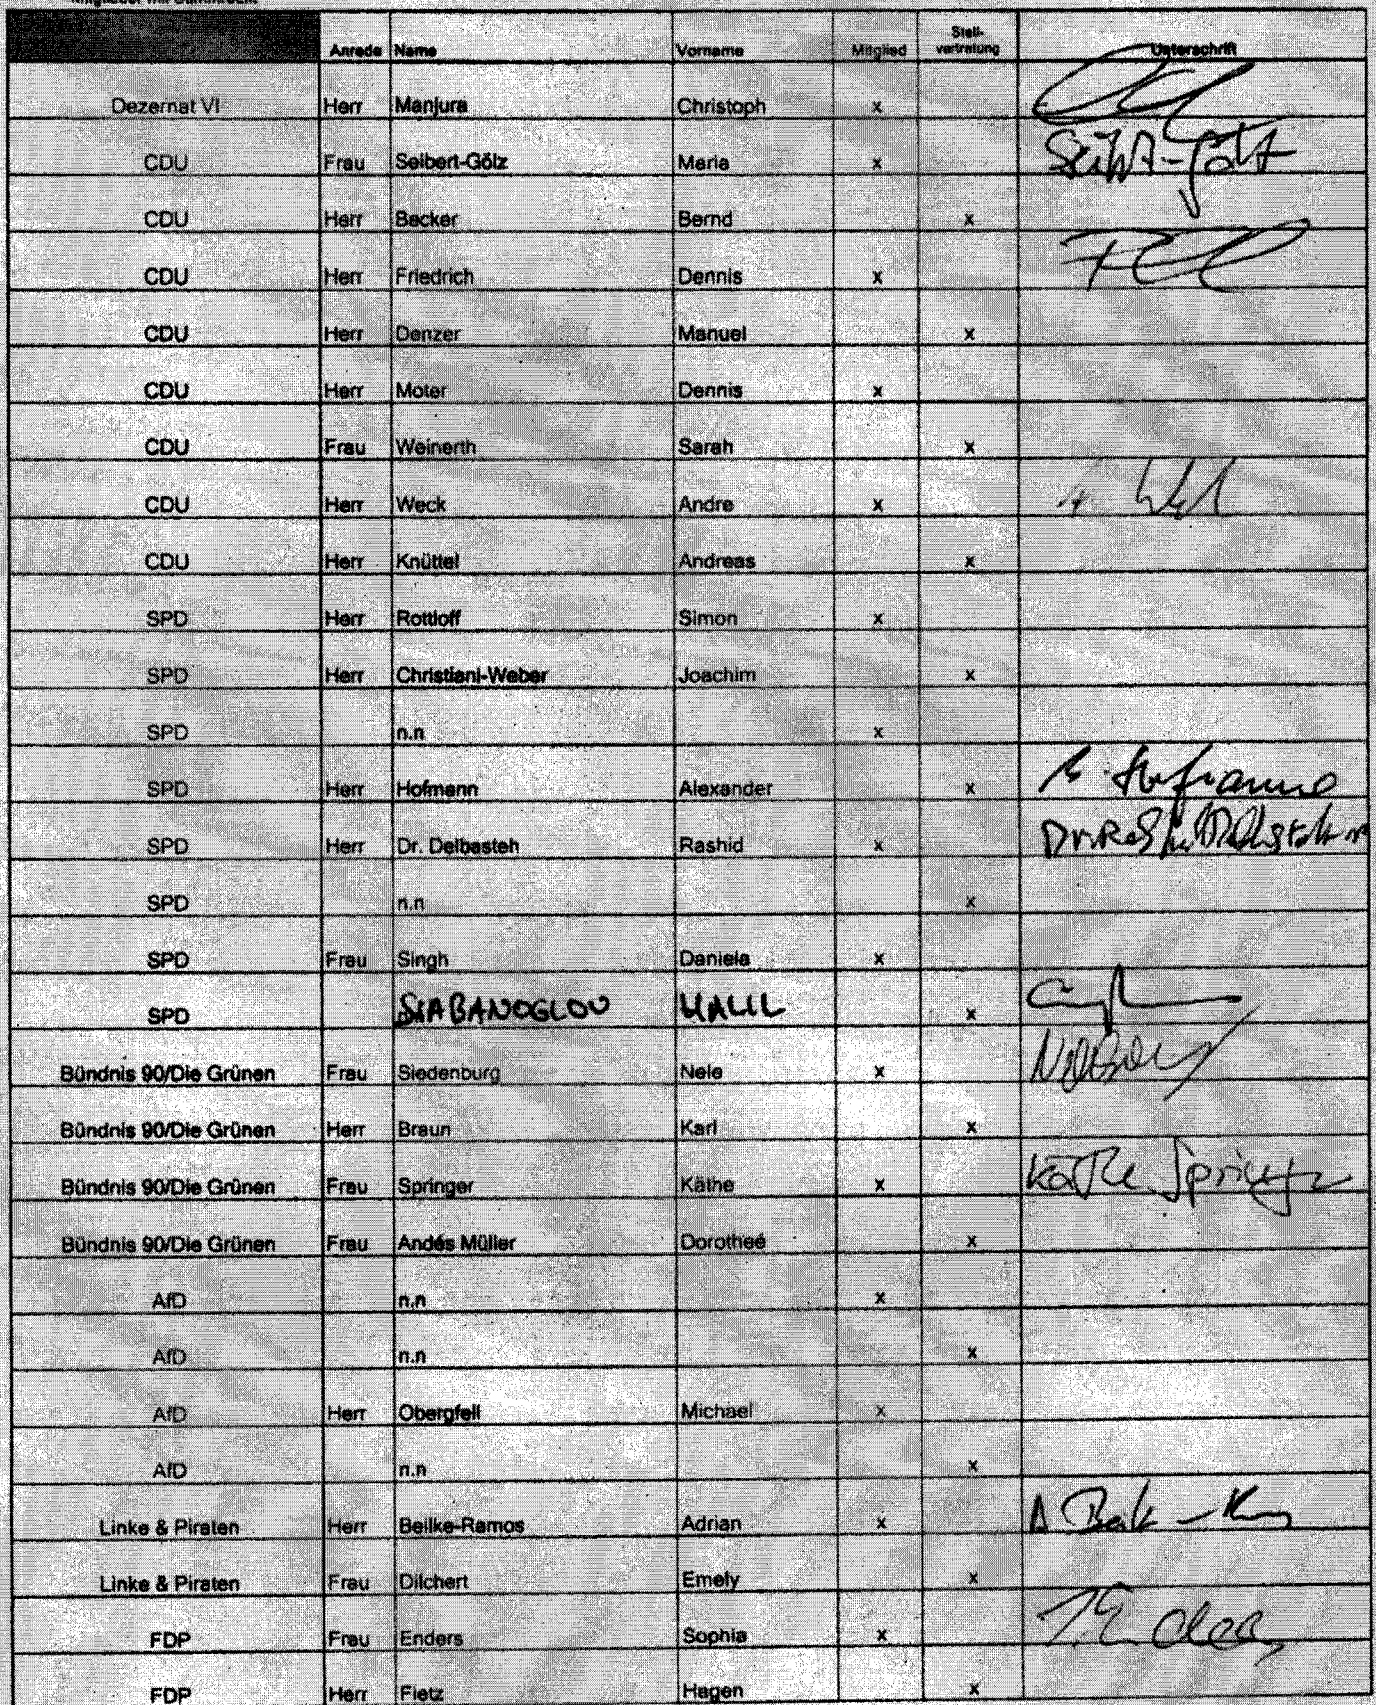 Mitglieder mit Stimmrecht
Anrede Name Vorname Mitglied Stell-vertretung Unterschrift
Dezernat VI Herr Manjura Christoph x
CDU Frau Seibert-Gölz Maria x
CDU Herr Becker Bernd x
CDU Herr Friedrich Dennis x
CDU Herr Denzer Manuel x
CDU Herr Moter Dennis x
CDU Frau Weinerth Sarah x
CDU Herr Weck Andre x
CDU Herr Knüttel Andreas x
SPD Herr Rottloff Simon x
SPD Herr Christiani-Weber Joachim x
SPD n.n x
SPD Herr Hofmann Alexander x
SPD Herr Dr. Delbasteh Rashid x
SPD n.n x
SPD Frau Singh Daniela x
SPD SIABANOGLOU HALIL x
Bündnis 90/Die Grünen Frau Siedenburg Nele x
Bündnis 90/Die Grünen Herr Braun Karl x
Bündnis 90/Die Grünen Frau Springer Käthe x Käthe Springer
Bündnis 90/Die Grünen Frau Andés Müller Dorotheé x
AfD n.n x
AfD n.n x
AfD Herr Obergfell Michael x
AfD n.n x
Linke & Piraten Herr Beilke-Ramos Adrian x
Linke & Piraten Frau Dilchert Emely x
FDP Frau Enders Sophia x
FDP Herr Fietz Hagen x